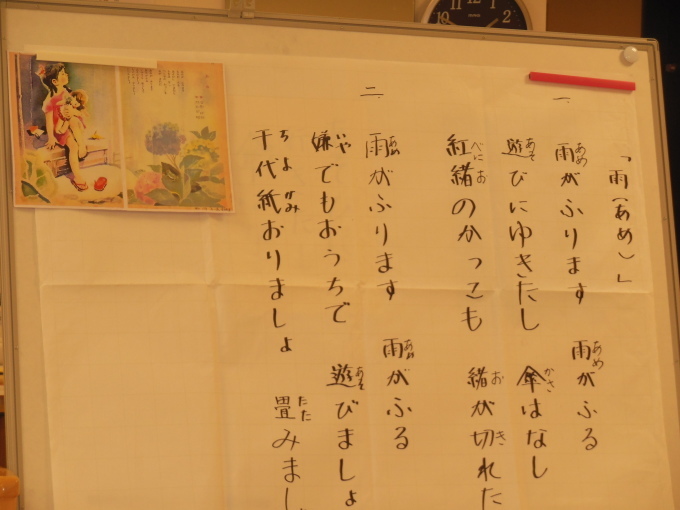 「雨(あめ)」
一、
雨があめふります 雨があめふる
遊あそびにゆきたし 傘かさはなし
紅緒べにおのかっこも 緒おが切きれた
二、
雨あめがふります 雨あめがふる
嫌いやでもおうちで 遊あそびましょ
千代紙ちよがみおりましょ 畳たたみまし